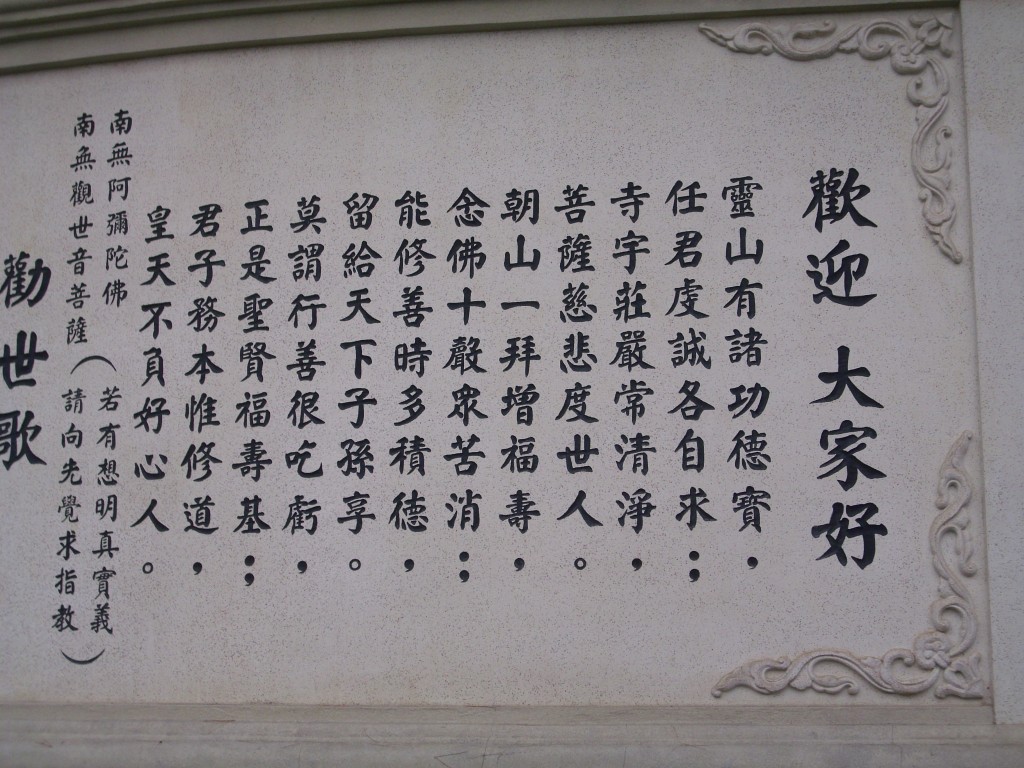 歡迎 大家好
靈山有諸功德寶，
任君虔誠各自求；
寺宇莊嚴常清淨，
菩薩慈悲度世人。
朝山一拜增福壽，
念佛十聲眾苦消；
能修善時多積德，
留給天下子孫享。
莫謂行善很吃虧，
正是聖賢福壽基；
君子務本惟修道，
皇天不負好心人。
南無阿彌陀佛
南無觀世音菩薩
（若有想明真實義
請向先覺求指教）
勸世歌